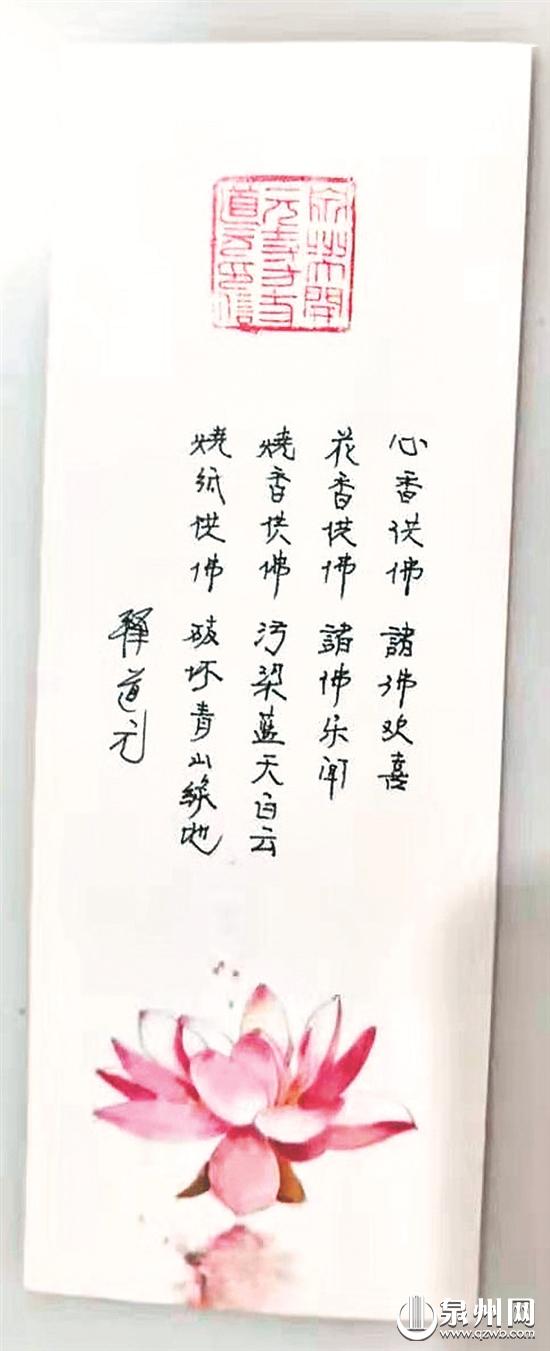 心香供佛 諸佛欢喜
花香供佛 諸佛乐闻
燒香供佛 污染蓝天白云
燒纸供佛 破坏青山綠地
釋道元
泉州网
www.qzwb.com